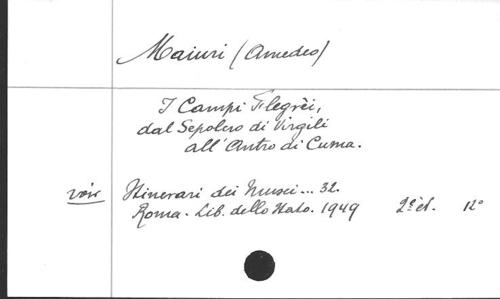 Maiuri (Amedeo)
I Campi Flegrèi,
dal Sepolcro di Virgili
all'Antro di Cuma.
voir Itinerari dei Musei... 32.
Roma. Lib. dello Stato. 1949 2ᵉ éd. 12°